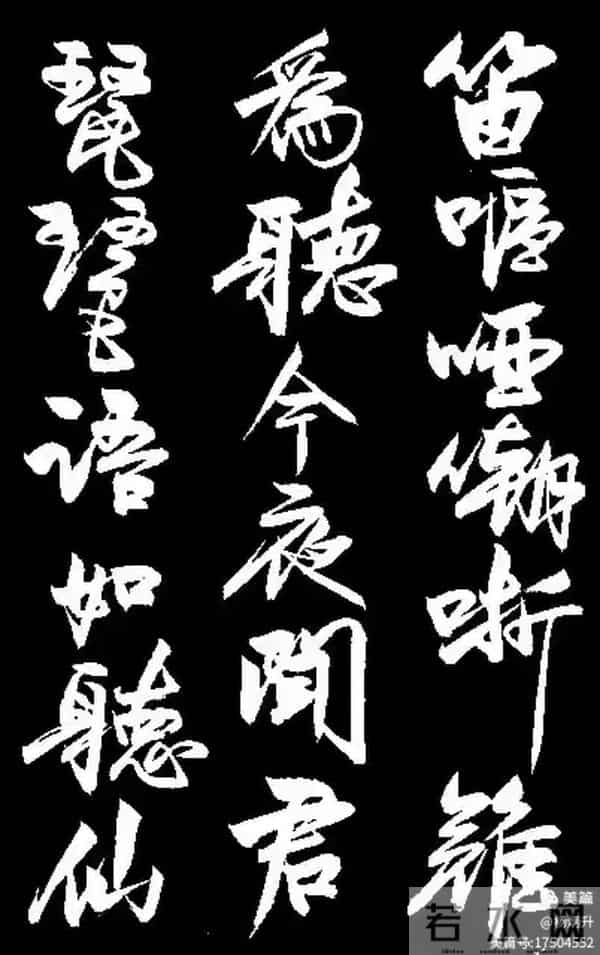 笛嘔啞嘲哳難
為聽今夜聞君
琵琶語如聽仙
美篇
若水网
美篇号:17504552